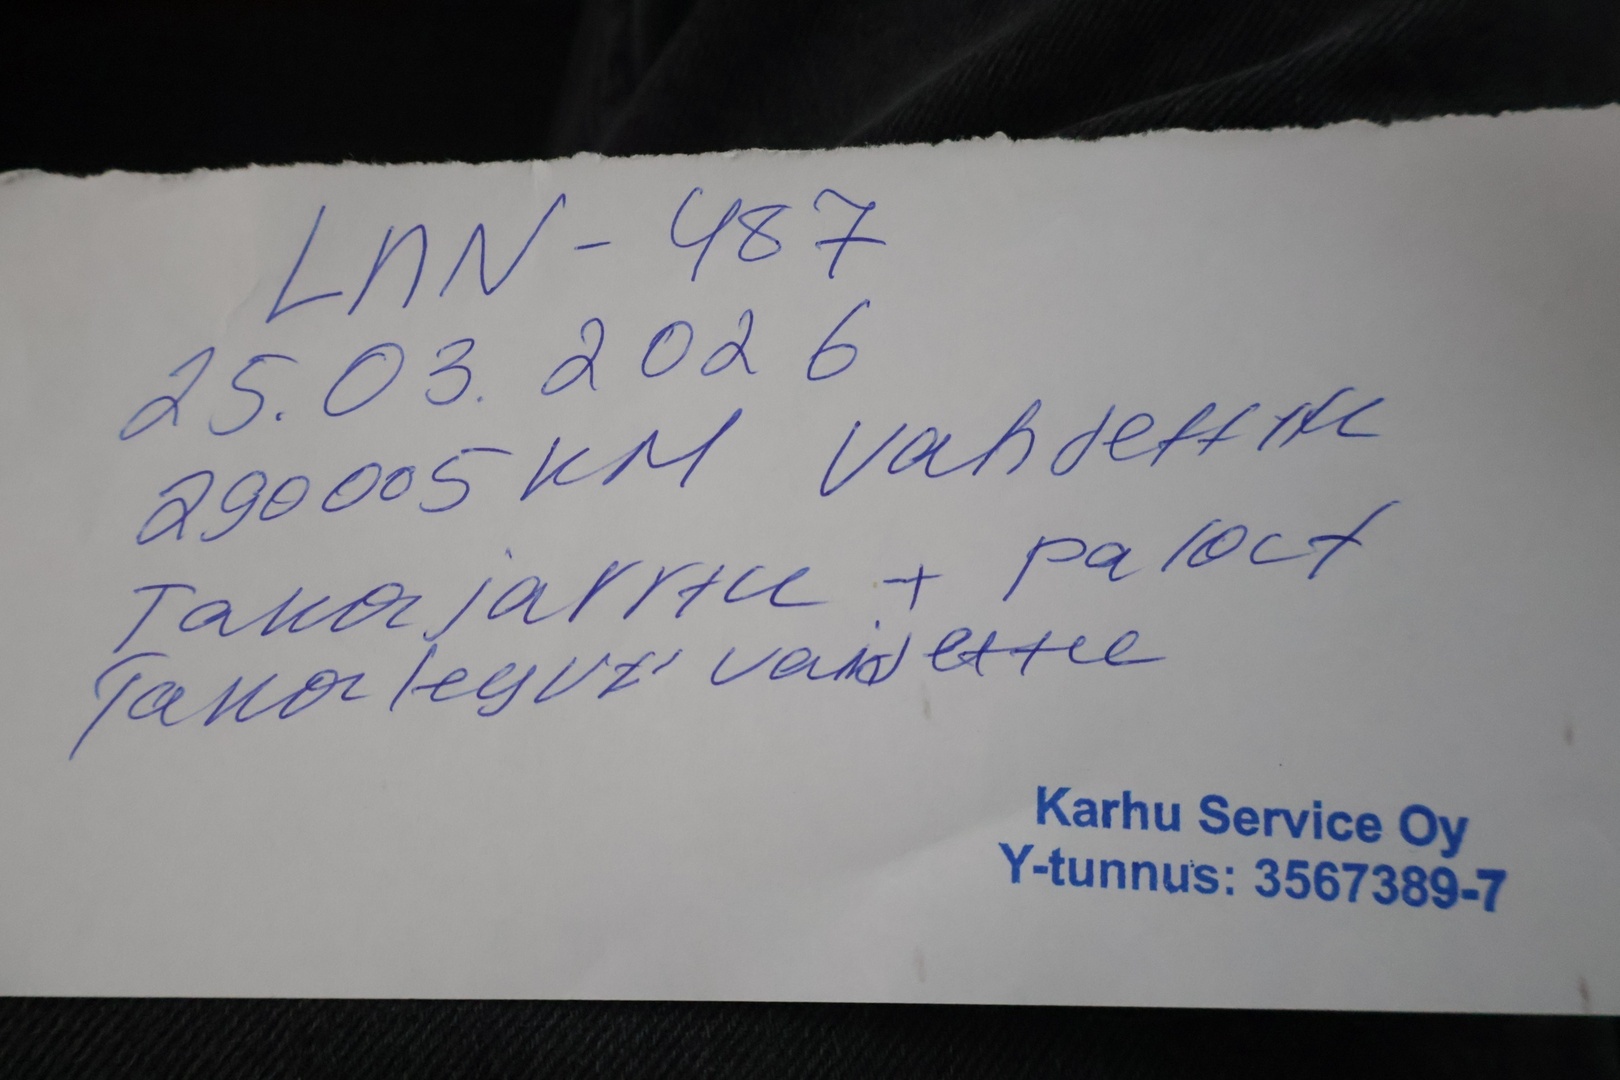 LAN-487
25.03.2026
290005 KM vahdettu
Taka jarrtu + palact
Taka levyt vaihdettu
Karhu Service Oy
Y-tunnus: 3567389-7